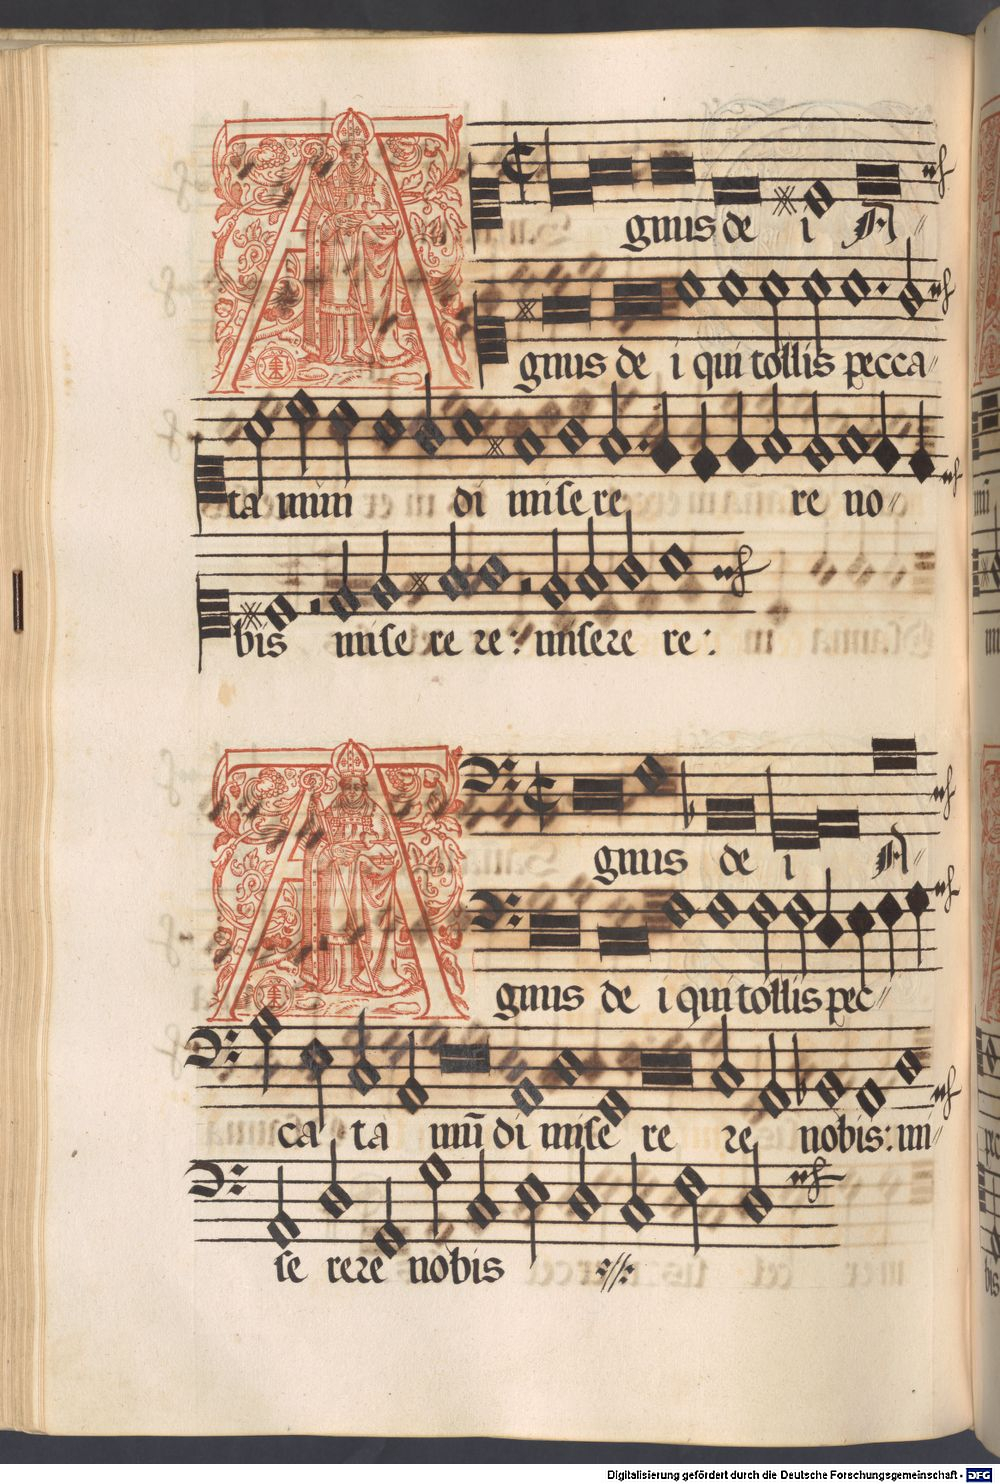 Agnus de i A
gnus de i qui tollis pecca
ta mun di mise re re no
bis mise re re: misere re:
Agnus de i A
gnus de i qui tollis pec
ca ta mū di mise re re nobis: mi
se rere nobis
Digitalisierung gefördert durch die Deutsche Forschungsgemeinschaft - DFG